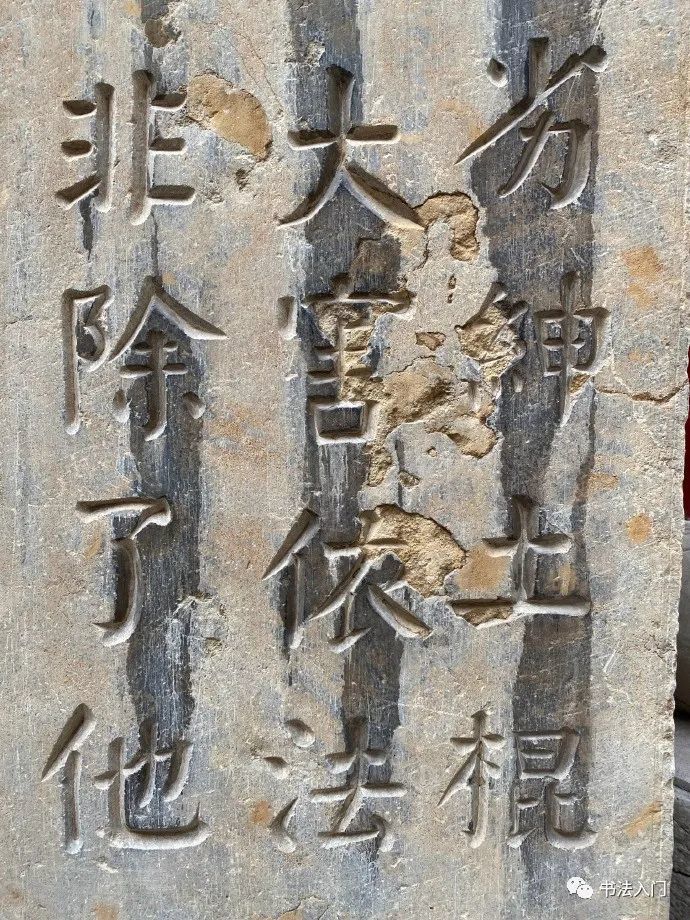 劣紳土棍
大害依法
非除了他
书法入门